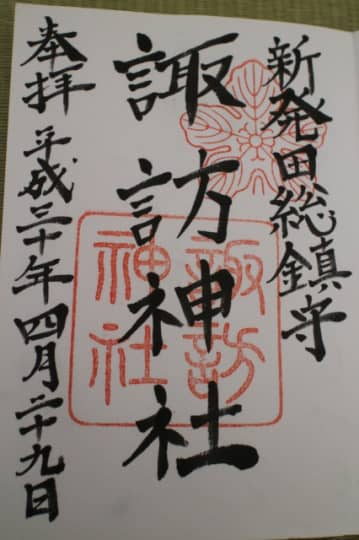 新発田総鎮守
諏訪神社
諏訪
神社
奉拝 平成三十年四月二十九日